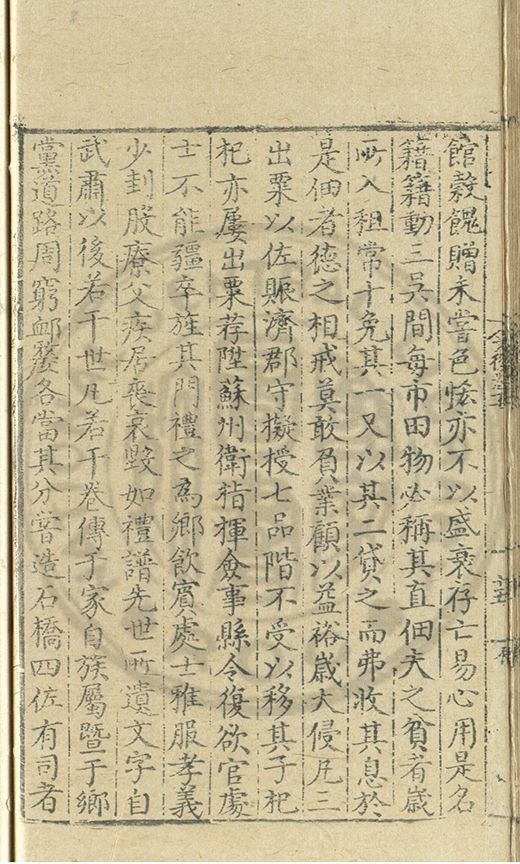 館穀餽贈未嘗色恡亦不以盛衰存亡易心用是名
籍籍動三吳間每市田物必稱其直佃夫之貧者歲
所入租常十免其一又以其二貸之而弗收其息於
是佃者德之相戒莫敢負業顧以益裕歲大侵凡三
出粟以佐賑濟郡守擬授七品階不受以移其子杞
杞亦屢出粟荐陞蘇州衛指揮僉事縣令復欲官處
士不能彊卒旌其門禮之為鄉飲賓處士雅服孝義
少刲股療父疾居喪哀毀如禮譜先世所遺文字自
武肅以後若干世凡若干卷傳于家自族屬暨于鄉
黨道路周窮卹嫠各當其分嘗造石橋四佐有司者